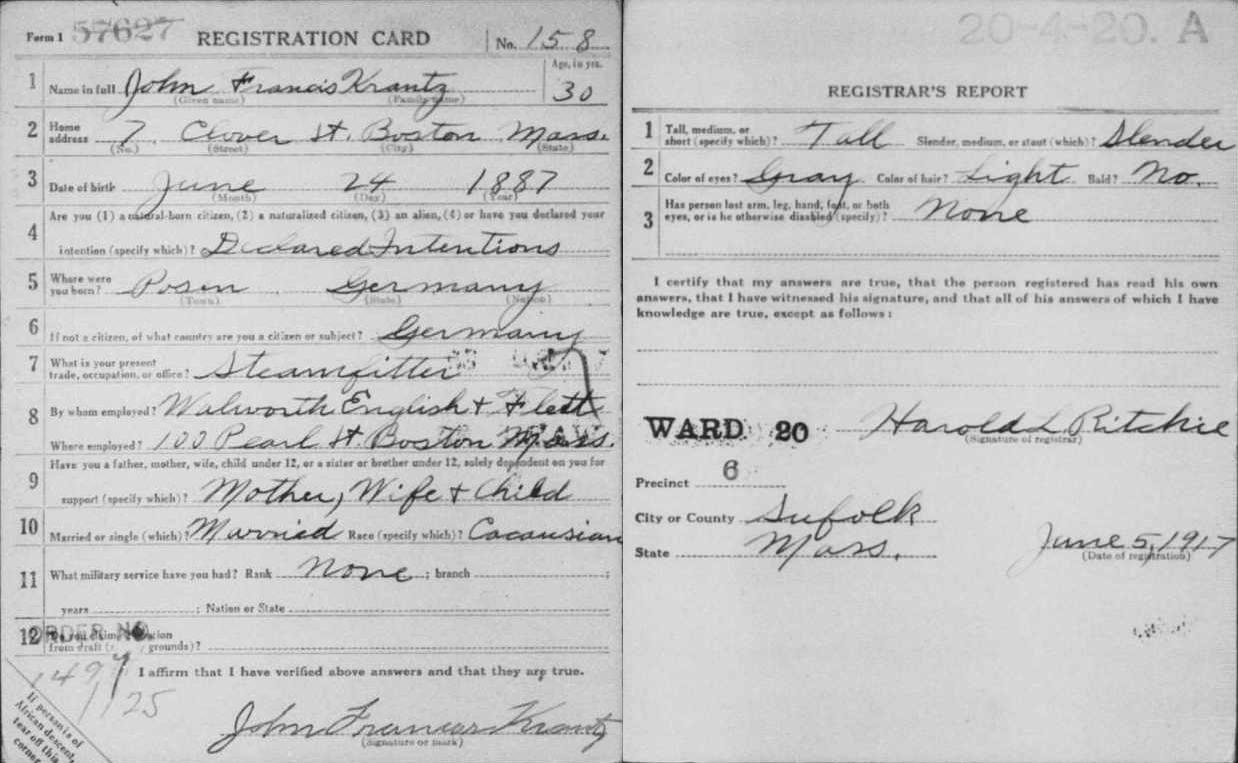 Form 1 57627 REGISTRATION CARD No. 158
1 Name in full John Francis Krantz Age, in yrs. 30
(Given name) (Family name)
2 Home address 7 Clover St. Boston Mass.
(No.) (Street) (City) (State)
3 Date of birth June 24 1887
(Month) (Day) (Year)
4 Are you (1) a natural-born citizen, (2) a naturalized citizen, (3) an alien, (4) or have you declared your
intention (specify which)? Declared Intentions
5 Where were you born? Posen Germany
(Town) (State) (Nation)
6 If not a citizen, of what country are you a citizen or subject? Germany
7 What is your present trade, occupation, or office? Steamfitter
8 By whom employed? Walworth English + Flett
Where employed? 100 Pearl St Boston Mass.
9 Have you a father, mother, wife, child under 12, or a sister or brother under 12, solely dependent on you for
support (specify which)? Mother, Wife + Child
10 Married or single (which)? Married Race (specify which)? Cacausian
11 What military service have you had? Rank None ; branch ;
years ; Nation or State
12 Do you claim exemption from draft grounds)?
ORDER NO.
I affirm that I have verified above answers and that they are true.
1125
John Francis Krantz
(Signature or mark)
If person is of
African descent,
tear off this
corner
20-4-20. A
REGISTRAR'S REPORT
1 Tall, medium, or short (specify which)? Tall Slender, medium, or stout (which)? Slender
2 Color of eyes? Gray Color of hair? Light Bald? No.
3 Has person lost arm, leg, hand, foot, or both eyes, or is he otherwise disabled (specify)? None
I certify that my answers are true, that the person registered has read his own
answers, that I have witnessed his signature, and that all of his answers of which I have
knowledge are true, except as follows:
WARD 20 Harold L Ritchie
(Signature of registrar)
Precinct 6
City or County Sufolk
State Mass. June 5, 1917
(Date of registration)